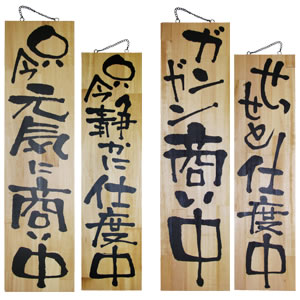 只今元気に商い中
只今静かに仕度中
ガンガン商い中
せっせと仕度中